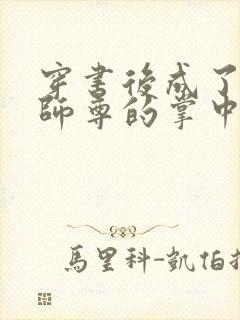 穿書後成了
師尊的掌中
馬里科-凱伯